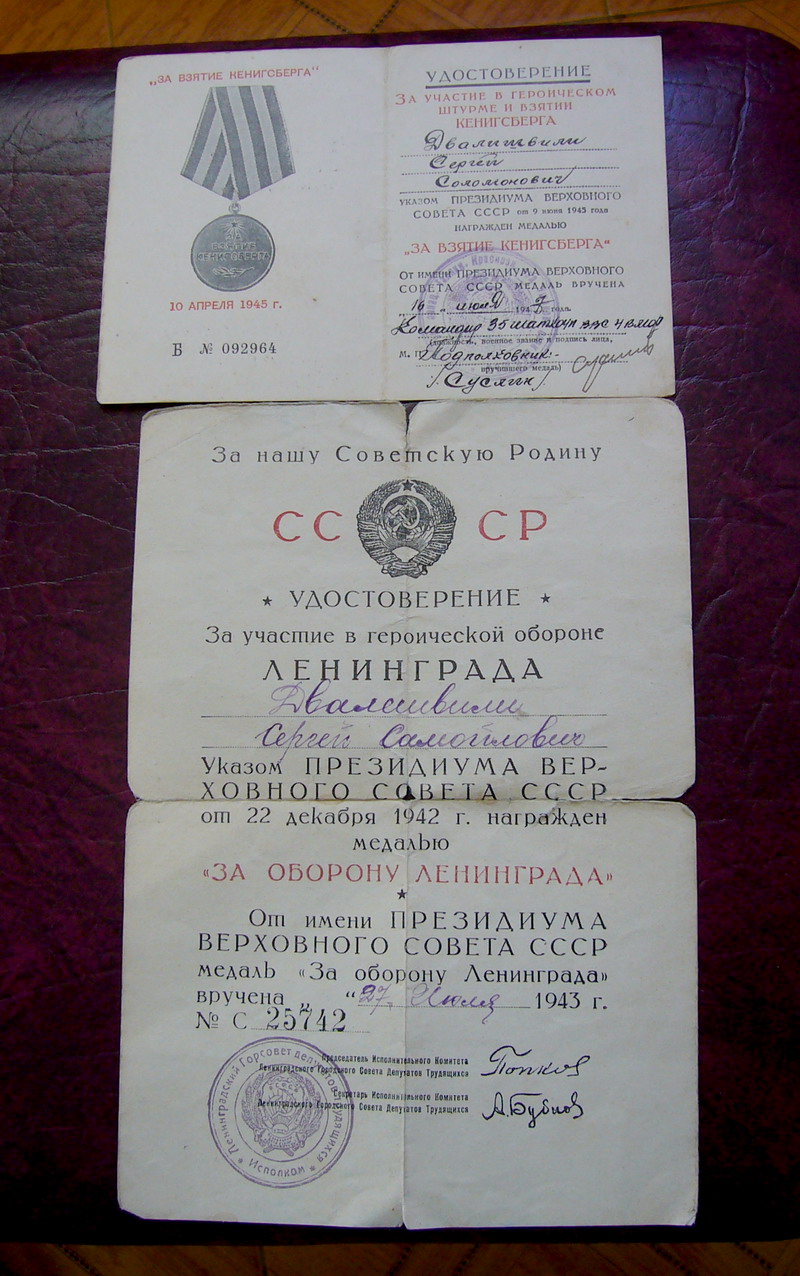 „ЗА ВЗЯТИЕ КЕНИГСБЕРГА“
ЗА ВЗЯТИЕ
КЕНИГСБЕРГА
10 АПРЕЛЯ 1945 г.
Б № 092964
УДОСТОВЕРЕНИЕ
ЗА УЧАСТИЕ В ГЕРОИЧЕСКОМ
ШТУРМЕ И ВЗЯТИИ
КЕНИГСБЕРГА
Двалишвили
Сергей
Соломонович
УКАЗОМ ПРЕЗИДИУМА ВЕРХОВНОГО
СОВЕТА СССР от 9 июня 1945 года
НАГРАЖДЕН МЕДАЛЬЮ
„ЗА ВЗЯТИЕ КЕНИГСБЕРГА“
ОТ ИМЕНИ ПРЕЗИДИУМА ВЕРХОВНОГО
СОВЕТА СССР МЕДАЛЬ ВРУЧЕНА
„16 “ июля 194 года
Командир 35
должность, военное звание и подпись лица,
М. П. Подполковник:-
вручившего медаль)
/Суслин/
За нашу Советскую Родину
СС СР
★ УДОСТОВЕРЕНИЕ ★
За участие в героической обороне
ЛЕНИНГРАДА
Двалешвили
Сергей Самойлович
Указом ПРЕЗИДИУМА ВЕР-
ХОВНОГО СОВЕТА СССР
от 22 декабря 1942 г. награжден
медалью
«ЗА ОБОРОНУ ЛЕНИНГРАДА»
★
От имени ПРЕЗИДИУМА
ВЕРХОВНОГО СОВЕТА СССР
медаль «За оборону Ленинграда»
вручена „ “27. Июля 1943 г.
№ С 25742
Председатель Исполнительного Комитета
Ленинградского Городского Совета Депутатов Трудящихся
Попков
Секретарь Исполнительного Комитета
Ленинградского Городского Совета Депутатов Трудящихся
А.Бубнов
Ленинградский Горсовет депутатов трудящихся
★ Исполком ★